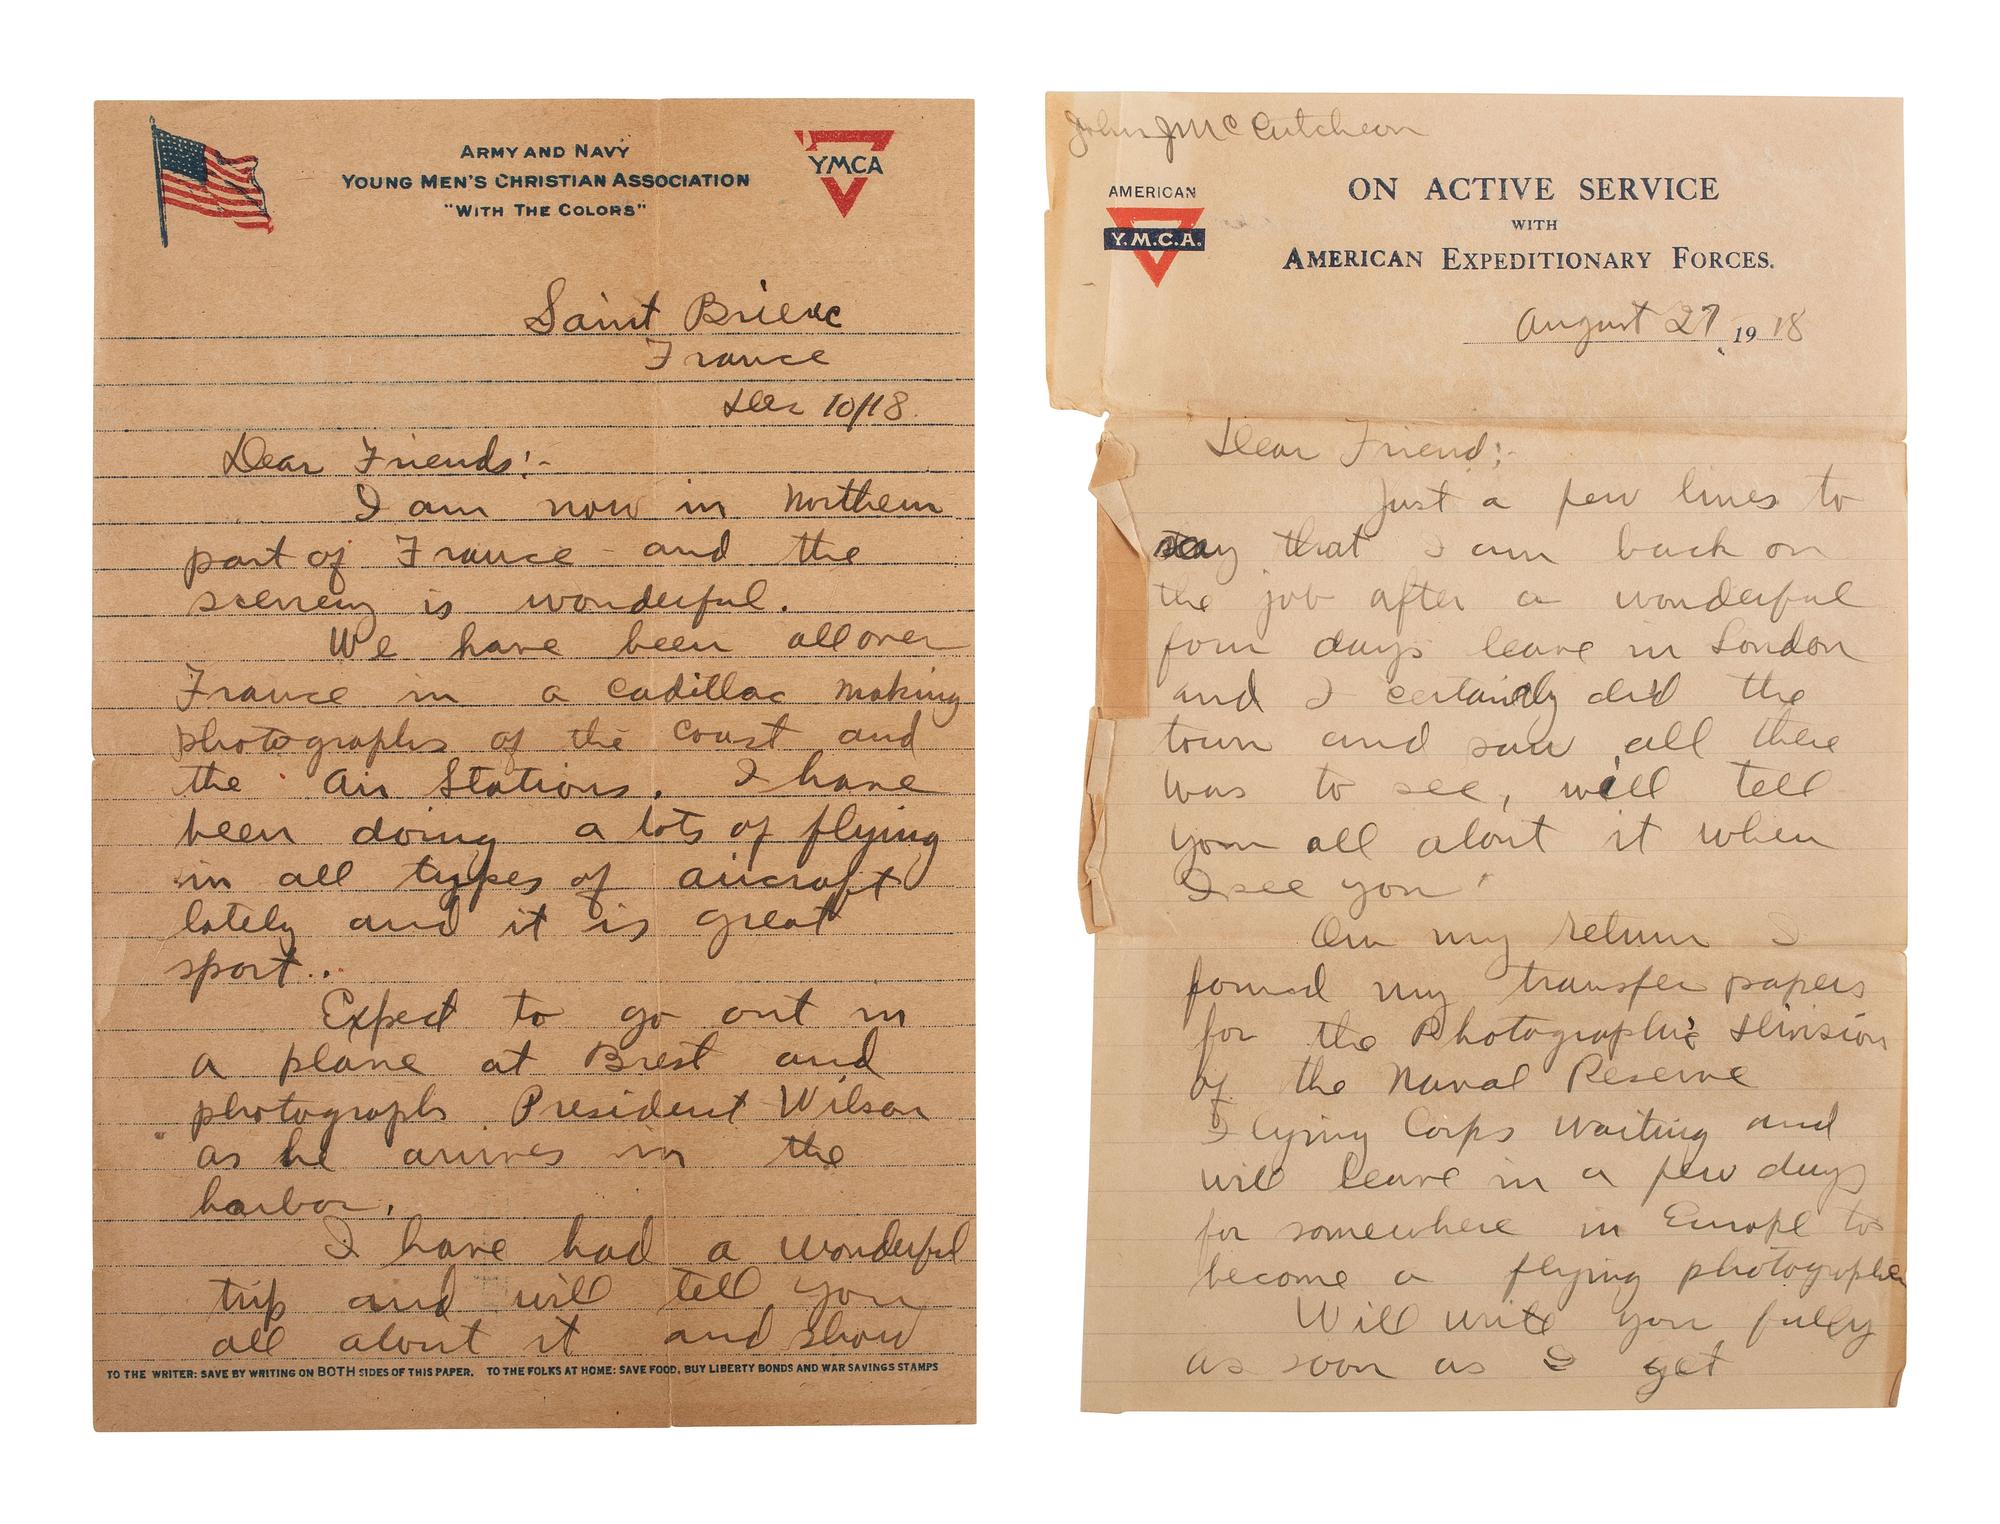 ARMY AND NAVY
YOUNG MEN'S CHRISTIAN ASSOCIATION
"WITH THE COLORS"
YMCA
Saint Brieuc
France
Dec 10/18.
Dear Friends:-
I am now in Northern
part of France and the
scenery is wonderful.
We have been all over
France in a Cadillac making
photographs of the Coast and
the Air Stations. I have
been doing a lots of flying
in all types of aircraft
lately and it is great
sport..
Expect to go out in
a plane at Brest and
photograph President Wilson
as he arrives in the
harbor.
I have had a wonderful
trip and will tell you
all about it and show
TO THE WRITER: SAVE BY WRITING ON BOTH SIDES OF THIS PAPER. TO THE FOLKS AT HOME: SAVE FOOD, BUY LIBERTY BONDS AND WAR SAVINGS STAMPS
John J McCutcheon
AMERICAN
Y.M.C.A.
ON ACTIVE SERVICE
WITH
AMERICAN EXPEDITIONARY FORCES.
August 27 1918
Dear Friend:-
Just a few lines to
say that I am back on
the job after a wonderful
four days leave in London
and I certainly did the
town and saw all there
was to see, will tell
you all about it when
I see you.
On my return I
found my transfer papers
for the Photographic Division
of the Naval Reserve
Flying Corps waiting and
will leave in a few days
for somewhere in Europe to
become a flying photographer
Will write you fully
as soon as I get